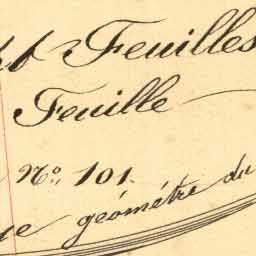 Feuilles
Feuille
No. 101.
géométre du